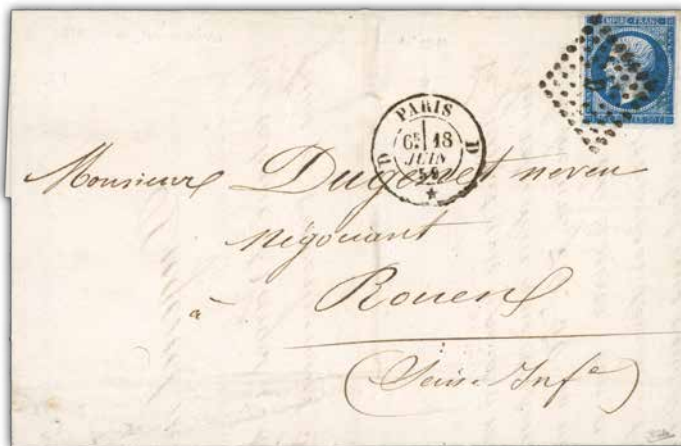 EMPIRE FRANC
PARIS
6E 18
JUIN
59
D D
Monsieur Dugenet neveu
négociant
à Rouen
(Seine Infe)